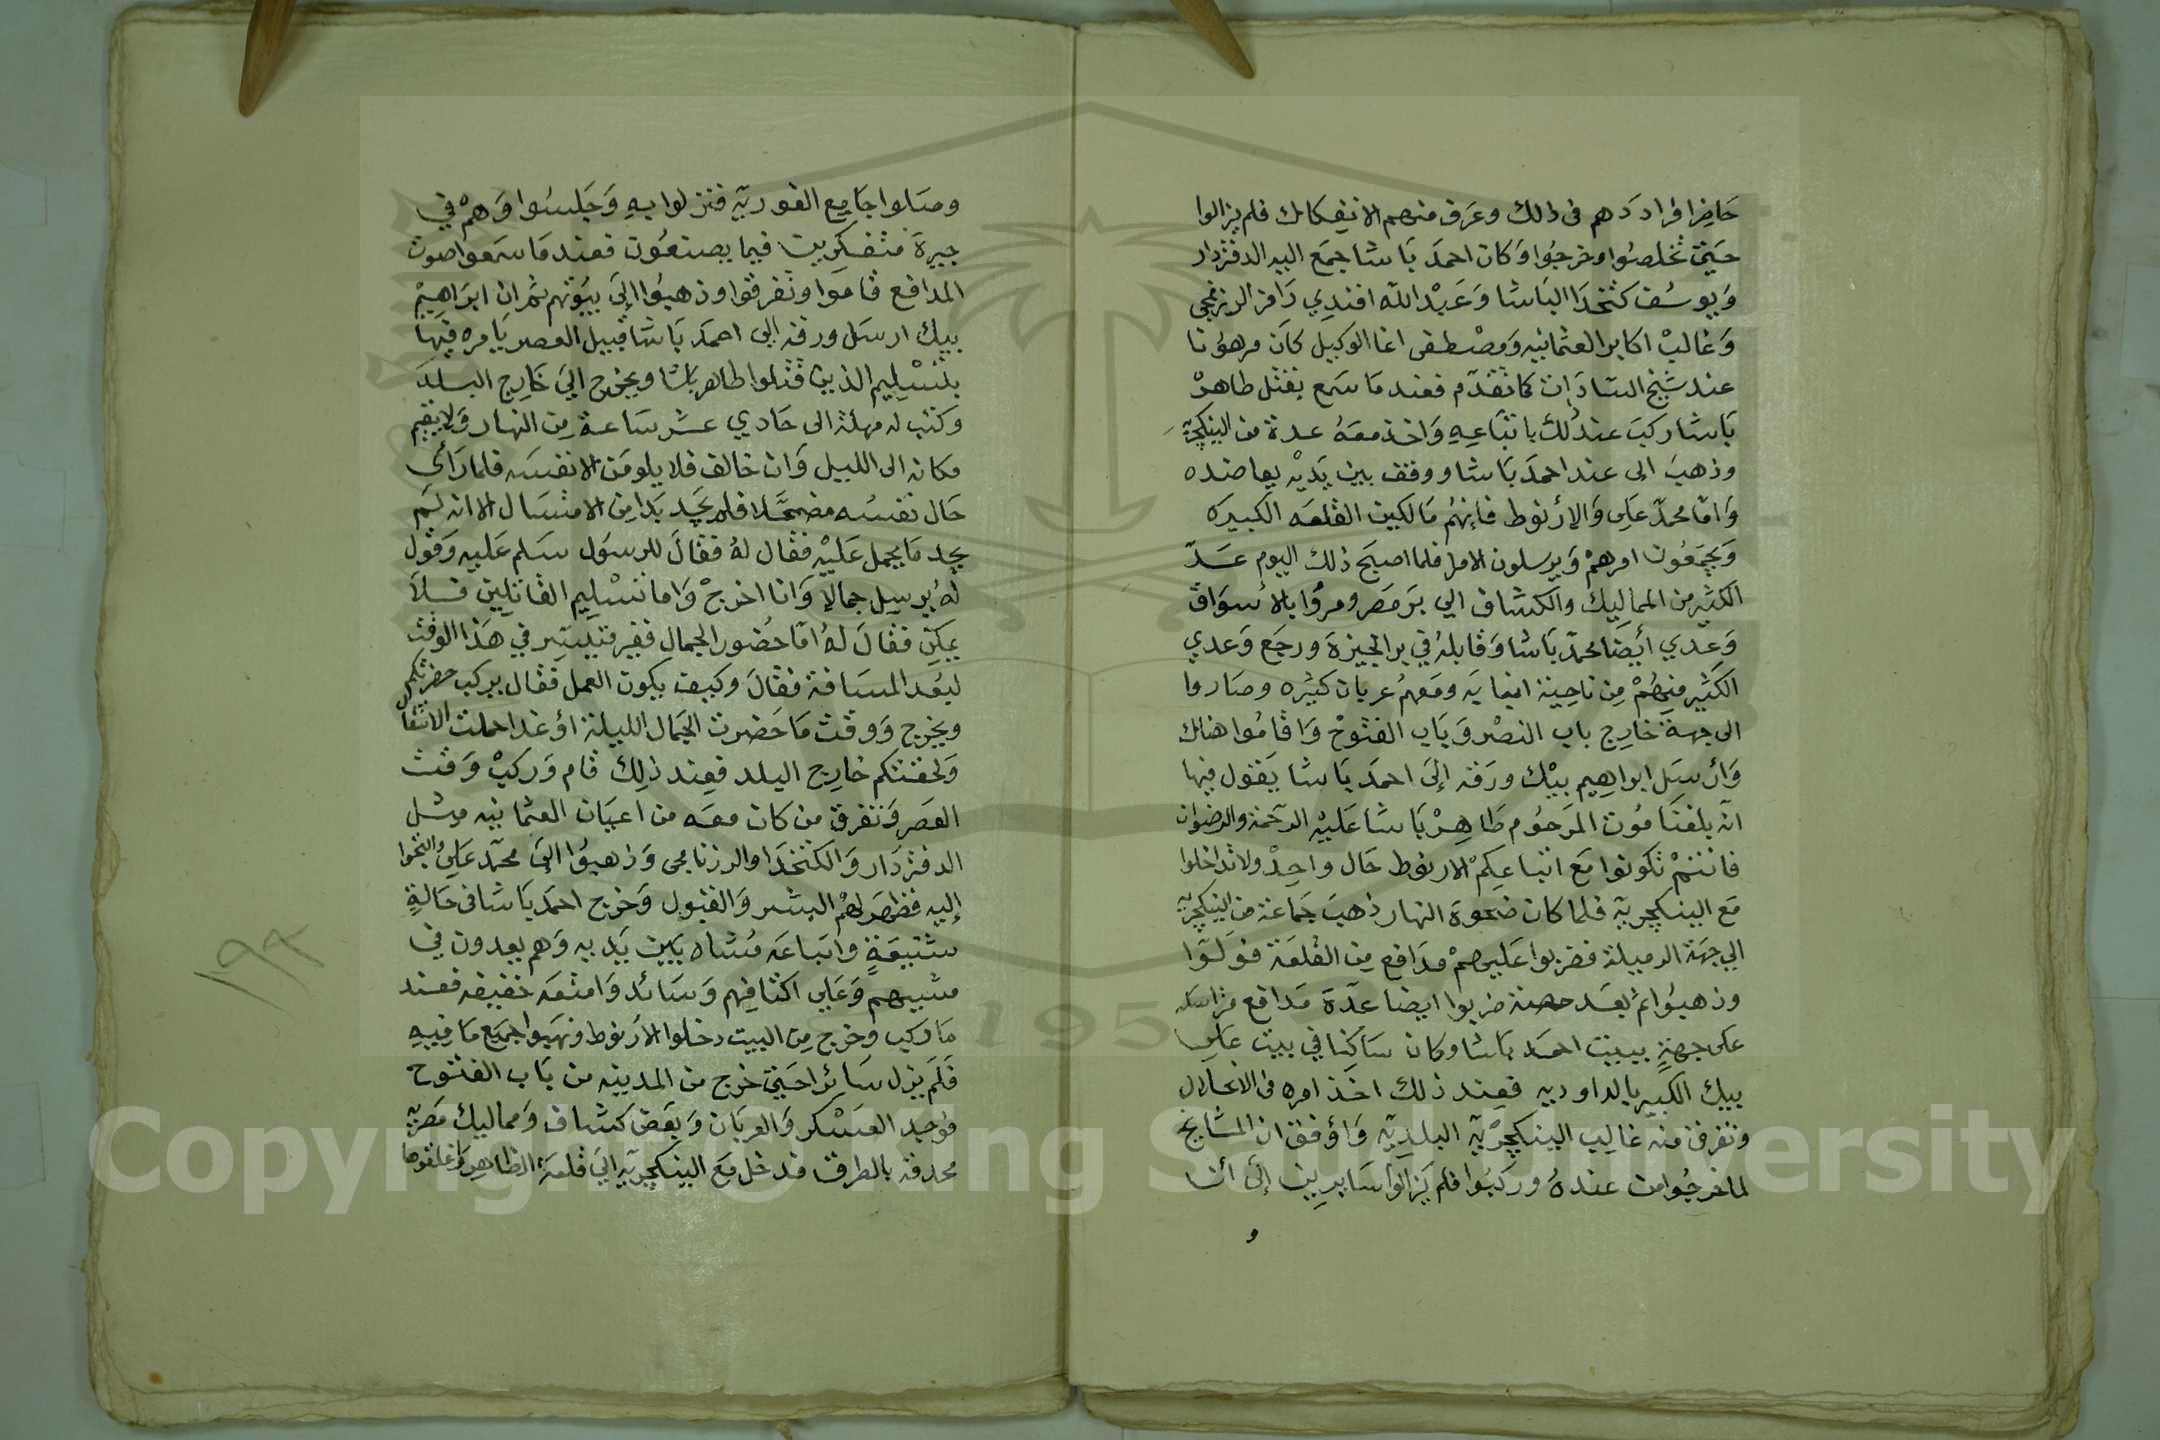 حَاضِرا فرادَدهم فى ذلك وعرف منهم الانفكاك فلم يزالوا
حتى تخلصُوا وخرجُوا وَكان احمدَ بَاشا جمَع اليه الدفتردار
وَيوسُف كتخدَا البَاشا وَعَبْد اللّه افندِي رَامز الرزنجى
وَغالبْ اكابر العثمانيه وَمصْطفى اغا الوكيل كانَ مرهوُنا
عند شَيْخ السّادَات كما تقدّم فعند مَا سَمع بقتل طاهرْ
بَاشا ركبَ عند ذلك باتبَاعِهِ وَاخذ معَهُ عدة من الينكچريّه
وذهبَ الى عند احمدَ بَاشا ووقف بين يَديْه يعاضده
وَامّا محمّد عَلِى وَالارنوط فإنهُم مَالكين القلعَه الكبيرَه
وَيجمَعُون امرهمْ وَيرسلون الامرا فلما اصبحَ ذلك اليوم عَدّ
الكثير من المماليك والكشاف الي برَ مَصر ومرُّوا بالاسْوَاق
وَعدي أيْضا محمّد بَاشا وَقابلهُ في بر الجيزة ورجَع وَعدي
الكثير منهُمْ مِن ناحِية انبابَه ومَعهمُ عربان كثيره وصَاروا
الى جهة خارِج باب النصْر وَبَاب الفتوحْ وَاقامُوا هنالك
وَارسَل ابراهِيم بيْك ورَقه إلىَ احمَد بَاشا يَقول فيها
انّه بلغنَا مُوت المَرحُوم طَاهِرْ بَاشا عَليْه الرّحمة والرضوان
فانتمْ تكونوا مَع اتباعِكمْ الارنوط حَال واحِدْ ولا تداخلوا
مَع الينكچريّه فلما كان ضحوَة النهار ذهبَ جَماعة من الينكچريّه
الي جهَة الرميلة فضربوا عَليهمْ مدَافع مِن القلعَة فوَلّوا
وذهبُوا ثم بعَد حصّة ضربوا ايضا عدّة مَدافع متراسَله
على جهةِ بيت احمَد بَاشا وكان سَاكِنا في بيت عَلِى
بيك الكبير بالداوديه فعِند ذلك اخذ امره فى الانحلال
وتفرق منه غالِب الينكچرْيّه البلدِيّه وَاوْفق ان المشايخ
لما خرجُوا من عندهُ ورَكبُوا فلم يَزالوا سَايرين إلىَ ان
و
وصَلوا جَامِع الغوريّه فنزلوا بهِ وَجَلسُوا وَهمْ في
حيرةَ متفكرين فيما يصنعُون فعند مَا سَمَعوا صوت
المدافع قامَوا وتفرقوا وذهبُوا إلىَ بيُوتهم ثم ان ابرَاهِيمْ
بيك ارسَل ورقه الى احمَد بَاشا قبيل العصر يَامره فيها
بتسْلِيم الذين قتلوا طاهر باشا ويخرج اليَ خَارِج البلدَ
وَكتب له مهلة الى حَادي عشر سَاعة مِن النهار وَلا يقيم
مكانه الى الليل وَان خالف فلا يلومَن الا نفسَه فلما رَأىِ
حَال نفسُه مضمحَّلا فلم يجَد بَدا مِن الامتثال الا انه لمَ
يجد مَا يحمل عَليْه فقال لهُ فقالَ للرسوَل سَلم عَليه وَقول
لهُ يُرسِل جمالا وَانا اخرجْ وَاما تسْلِيم القاتلِين فلَا
يمكن فقالَ لهُ امّا حُضور الجمال فغير متيسّر في هَذا الوقت
لبُعد المسَافة فقالَ وكيف يكون العمل فقال يركب حضرتكم
ويخرج وَوقت مَا حَضرت الجمَال الليلة اوْ غدا حملت الاثقال
وَلحقتكم خارِج البلد فعِند ذلِك قام وَركبْ وَقت
العَصر وَتفرق من كان معَه من اعيَان العثمانيه مثل
الدفتردَار وَالكتخدَا والرزنامجى وَذهبوُا إلىَ محمّد عَلى والتجوا
إليه فظهَر لهمْ البشر وَالقبول وَخرج احمَد بَاشا فى حَالةٍ
شنيعَةٍ واتبَاعَه مُشاه بَين يَديه وَهم يعدون في
مشيهم وَعَلى اكتافِهم وَسَائد وَامتعَه خفيفه فعند
مَا ركب وخرج مِن البيت دخلوا الارَنوط ونهَبوا جميَع مَا فِيهِ
فلمَ يزل سَائرا حَتى خرج من المدينه من بَاب الفتوح
فوَجد العَسْكر وَالعربَان وَبَعض كشاف وَمماليك مَصريّه
محدقة بالطرق فدخل مَع الينكچريّه اليَ قلعَة الظاهِر وَاغلقوها
١٩٢
Copyright © King Saud University
1957